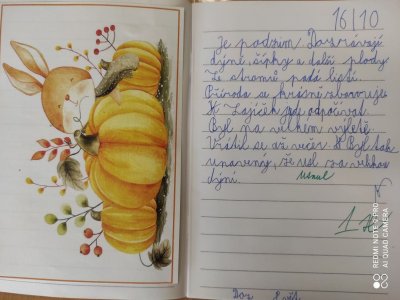 16/10
Je podzim. Dozrávají
dýně, šípky a další plody
Ze stromů padá listí.
Příroda se krásně zbarvuje.
Zajíček jde odpočívat.
Byl na velkém výletě
Vrátil se až večer. Byl tak
unavený, že usl za velkou
dýní. usnul
1
REDMI NOTE 2 PRO
AI QUAD CAMERA